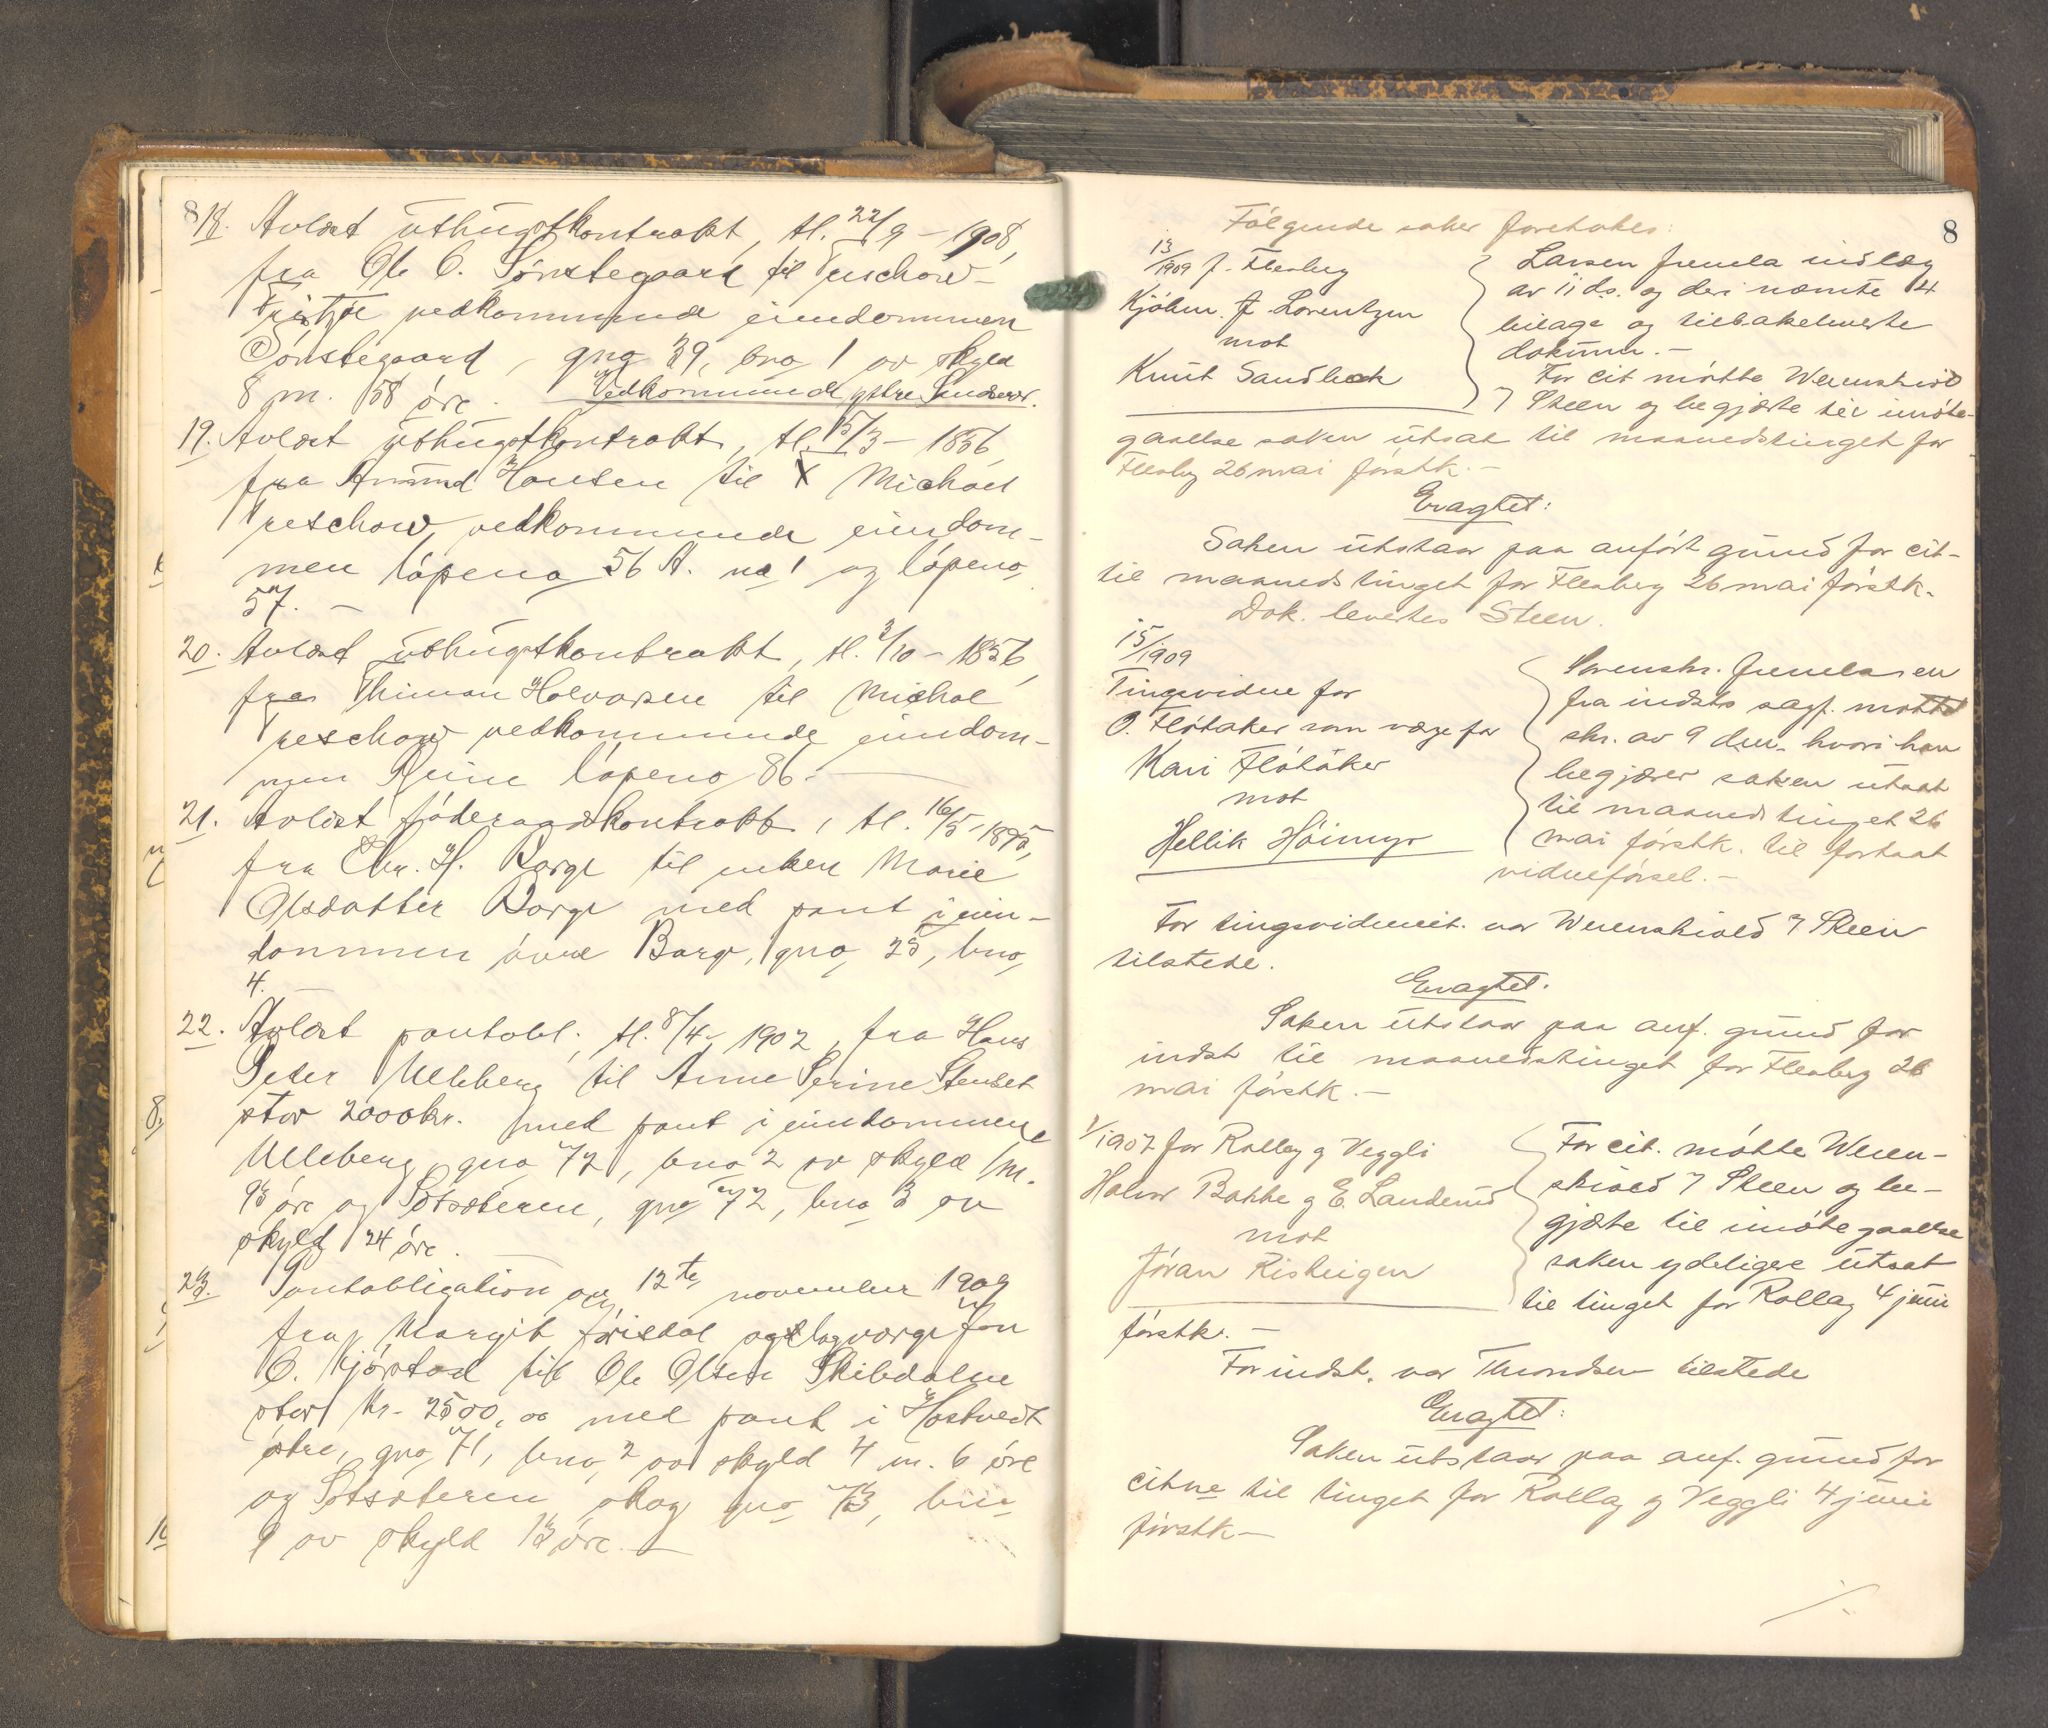 8
18. Avlæst uthugstkontrakt, tl. 22/9 - 1908,
fra Ole O. Sønstegaard til Treschow-
Fritzøe vedkommende eiendommen
Sønstegaard, gno 39, bno 1 av skyld
8 m. 58 øre. Vedkommende ystre
19. Avlæst uthugstkontrakt, tl. 15/3 - 1856
fra Amund Hansen til Michael
Treschow, vedkommende eiendom-
men løpeno 56 A. no 1 og løpeno
57. -
20. Avlæst uthugstkontrakt, tl. 2/10 - 1856,
fra Thiman Halvorsen til Michal
Treschow vedkommende eiendom-
men løpeno 86. -
21. Avlæst føderaadskontrakt, tl. 16/5 - 1895,
fra Chr. H. Borge til enken Marie
Olsdatter Borge med pant i eien-
dommen øvre Borge, gno, 25, bno,
4.
22. Avlæst pantobl., tl. 8/4 - 1902, fra Hans
Peder Ulleberg til Anne Serine Stenset
stor 2000 kr. med pant i eiendommene
Ulleberg gno 72, bno 2 av skyld 1 m.
93 øre og Sotsæteren, gno 72, bno 3 av
skyld 24 øre.
23. Pantobligation av 12te november 1909
fra Margit og lagværge
O. Kjørstad til Ole Olsen Skibdalne
stor kr. 2500,00 med pant i Hostvedt
østre, gno 71, bno 2 av skyld 4 m. 6 øre
og Sotsæteren skog gno 73, bno
9 av skyld 13 øre. -
8
Følgende saker foretokes:
13/1909 f. Flesberg
Kjøbm. J. Lorentzen
mot
Knut Sandbæk
Larsen Furula indlæg
av 11 ds. og deri nævnte 4
bilage og tilbakeleverte
dokum. -
For cit møtte Werenskiold
& Steen og begjærte til imøte-
gaaelse saken utsat til maanedstinget for
Flesberg 26 mai førstk. -
Eragtet:
Saken utstaar paa anført grund for cit-
til maanedstinget for Flesberg 26 mai førstk.
Dok. levertes Steen.
15/1909
Tingsvidne for
O. Fløtaker som værge for
Kari Fløtaker
mot
Hellik Høimyr
Sorenskr. fremla en
fra indsts sagf. mottat
skr. av 9 den. hvori han
begjærer saken utsat
til maanedstinget 26
mai førstk. til fortsat
vidneførsel. -
For tingsvidnecit. var Werenskiold & Steen
tilstede.
Eragtet.
Saken utstaar paa anf. grund for
indst til maanedstinget for Flesberg 26
mai førstk. -
1/1907 for Rollag og Veggli
Halvor Bakke og E. Landerud
mot
Jøran Risteigen
For cit. møtte Weren-
skiold & Steen og be-
gjærte til imøtegaaelse
saken ydeligere utsat
til tinget for Rollag 4 juni
førstk. -
For indst. var Throndsen tilstede
Eragtet:
Saken utstaar paa anf. grund for
citne til tinget for Rollag og Veggli 4 juni
førstk -